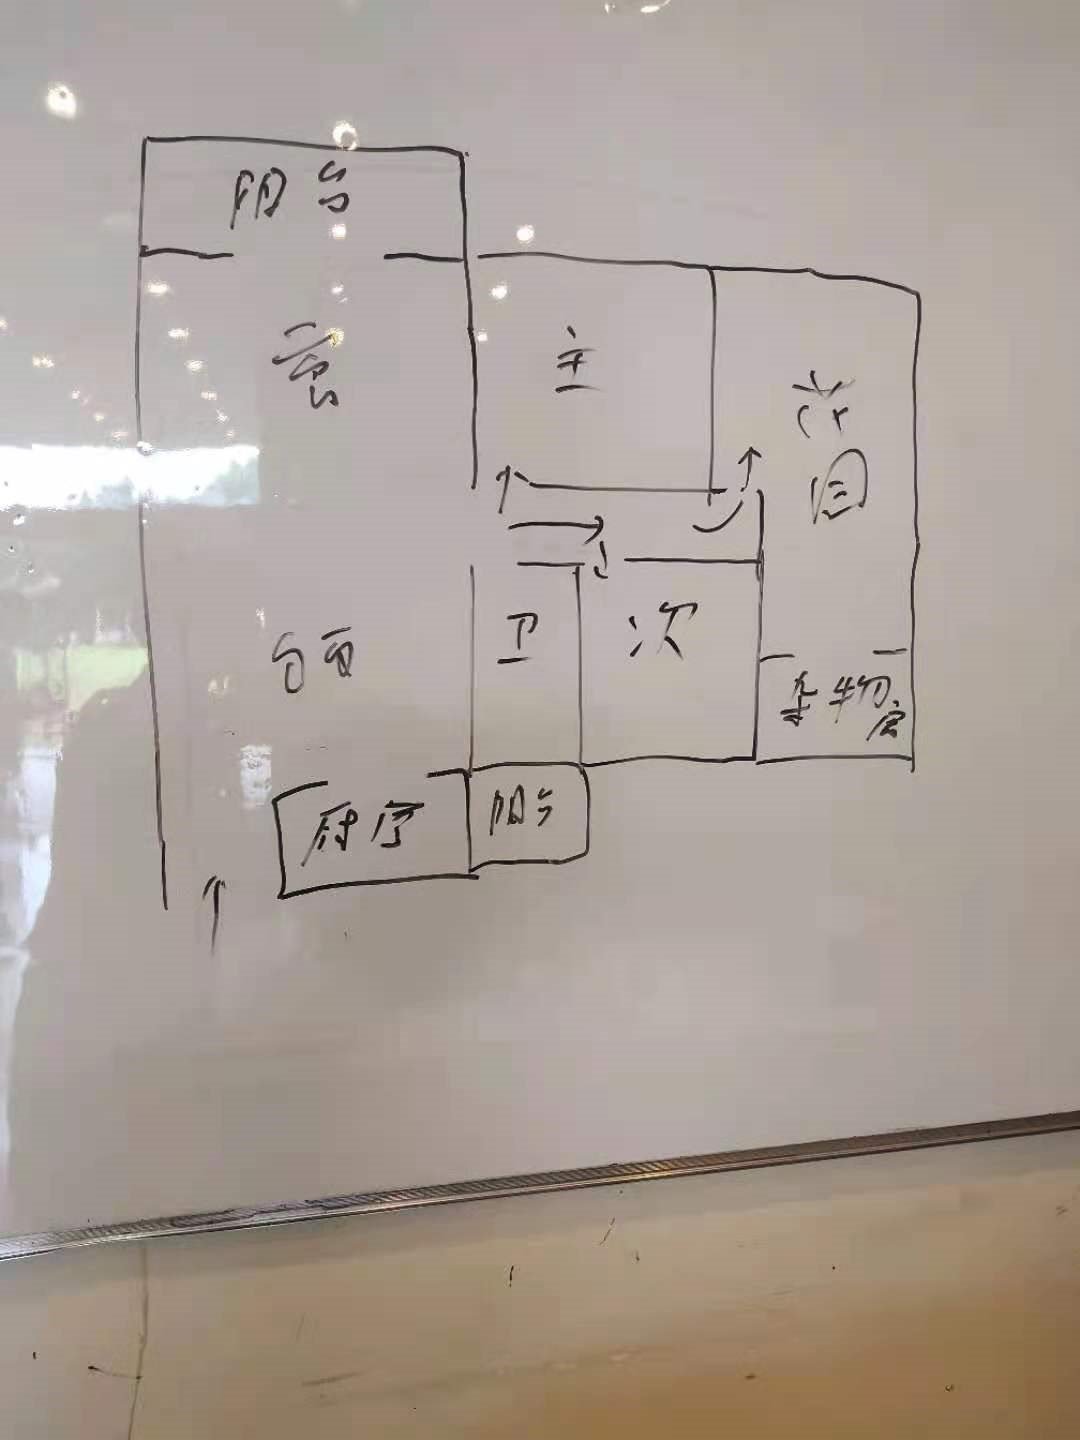 阳台
客
主
花
园
卫
次
杂物房
厨房
阳台